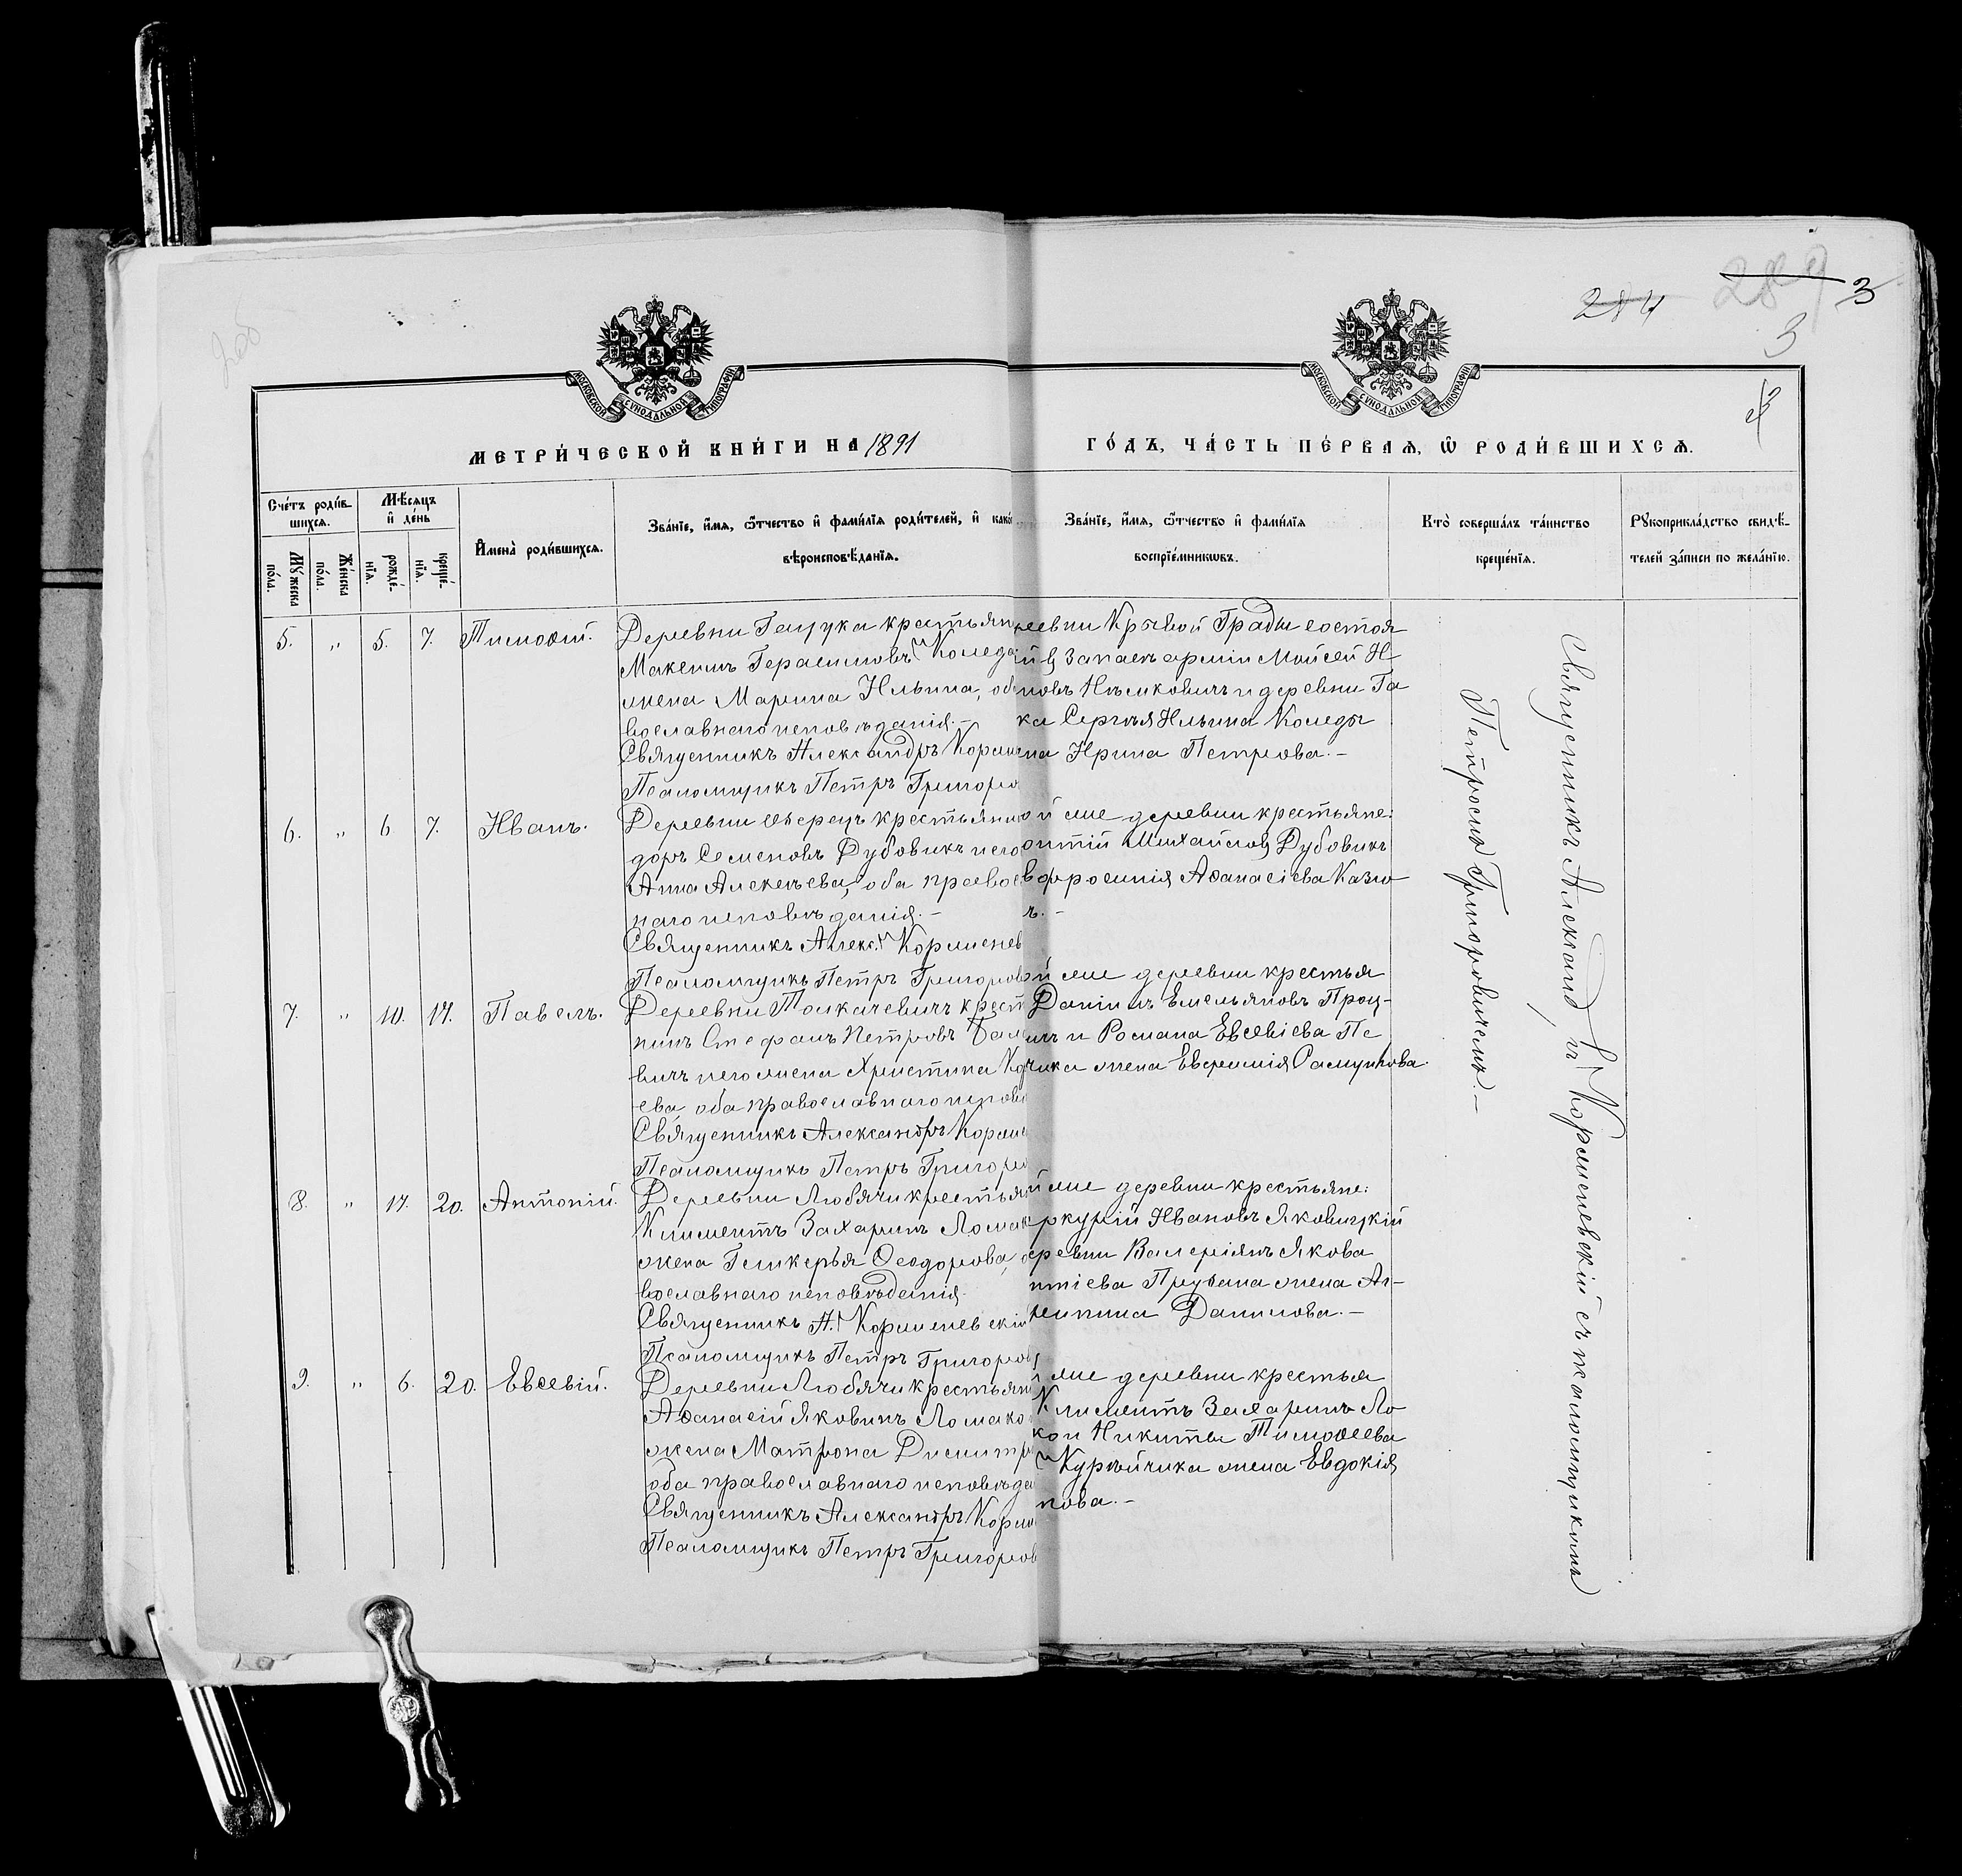 284 289 3
3
МОСКОВСКОЙ СѴНОДАЛЬНОЙ ТИПОГРАФІИ
МОСКОВСКОЙ СѴНОДАЛЬНОЙ ТИПОГРАФІИ
МЕТРИ́ЧЕСКОЙ КНИ́ГИ НА 1891
ГО́ДЪ, ЧА́СТЬ ПЕ́РВАЯ, Ѿ РОДИ́ВШИХСЯ.
Сче́тъ роди́в-
шихся.
Мꙋ́жеска
по́ла.
Же́нска
по́ла.
Мѣ́сяцъ
и де́нь
рожде́-
нїя.
креще́-
нїя.
И҆мена̀ роди́вшихся.
Зва́нїе, и҆́мя, ѻ҆́тчество и҆ фами́лїя роди́телей, и҆ како́
вѣроисповѣ́данїя.
Зва́нїе, и҆́мя, ѻ҆́тчество и҆ фами́лїя
воспрїе́мникѡвъ.
Кто̀ соверша́лъ та́инство
креще́нїя.
Рꙋкоприкла́дство свидѣ́-
телей за́писи по жела́нїю.
5. „ 5. 7. Тимоѳій.
Деревни Гацука крестьян
Максимъ Герасимовъ Коледа
жена Марина Ильина, об
вославнаго исповѣданія. –
Священникъ Александръ Корше
Псаломщикъ Петръ Григоро
ревни Крывой Грады состоя
й въ Запасѣ арміи Моисей И
новъ Нѣмковичъ и деревни Га
ка Сергѣя Ильина Коледы
на Ирина Петрова. –
6. „ 6. 7. Иванъ.
Деревни крестьянин
доръ Семеновъ Дубовикъ и его
Анна Алексѣева, оба правос
наго исповѣданія. –
Священникъ Алекс. Коршенев
Псаломщикъ Петръ Григоров
ой же деревни крестьяне:
онтій Михайловъ Дубовикъ
Вфросинія Аѳанасіева Казю
ъ. –
7. „ 10. 17. Павелъ.
Деревни Толкачевичъ крест
нинъ Стефанъ Петровъ
вичъ и его жена Христина
ева, оба православнаго испов
Священникъ Александръ Корше
Псаломщикъ Петръ Григоро
ой же деревни крестья
Даніилъ Емельяновъ Проц-
и Романа Евсевіева Пе
чика жена Евфимія
8. „ 17. 20. Антоній.
Деревни Любячи крестьян
Климентъ Захаринъ Ломак
жена Гликерья Ѳеодорова, о
вославнаго исповѣданія.
Священникъ А. Коршеневскій
Псаломщикъ Петръ Григоров
й же деревни крестьяне:
ркурій Ивановъ Яковицкій
ревни Валеріянъ Якова
нтіева Прубана жена Аг-
Данилова. –
9. „ 6. 20. Евсевій.
Деревни Любячи крестьян
Аѳанасій Яковинъ Ломако
жена Матрона Димитр
оба православнаго исповѣда
Священникъ Александръ Корше
Псаломщикъ Петръ Григоров
же деревни крестья
Климентъ Захаринъ Ло
кой Никиты Тимоѳеева
Курейчика жена Евдокія
нова. –
Священникъ Александръ Коршеневскій съ псаломщикомъ
Петромъ Григоровичемъ. –